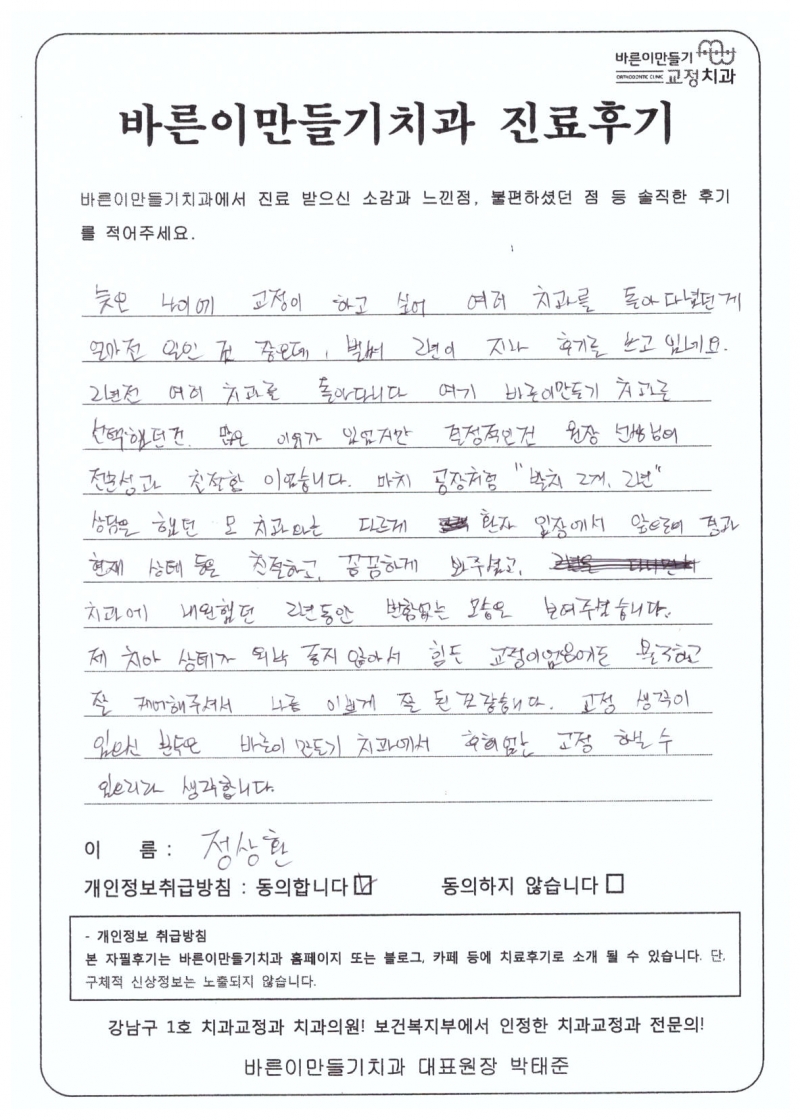 바른이만들기
ORTHODONTIC CLINIC 교정치과
바른이만들기치과 진료후기
바른이만들기치과에서 진료 받으신 소감과 느낀점, 불편하셨던 점 등 솔직한 후기
를 적어주세요.
늦은 나이에 교정이 하고 싶어 여러 치과를 돌아다녔던게
얼마전 일인 것 같은데, 벌써 2년이 지나 후기를 쓰고 있네요.
2년전 여러 치과를 돌아다니다 여기 바른이만들기 치과를
선택했던건 많은 이유가 있었지만 결정적인건 원장 선생님의
전문성과 친절함 이었습니다. 마치 공장처럼 "발치 2개, 2년"
상담을 했던 모 치과와는 다르게 환자 입장에서 앞으로의 결과
현재 상태 등을 친절하고, 꼼꼼하게 봐주셨고,
치과에 내원했던 2년동안 변함없는 모습을 보여주셨습니다.
제 치아 상태가 워낙 좋지 않아서 힘든 교정이었음에도 불구하고
잘 케어해주셔서 나름 이쁘게 잘 된것 같습니다. 교정 생각이
있으신 분들은 바른이 만들기 치과에서 후회없는 교정 하실 수
있으리라 생각합니다.
이 름 : 정상환
개인정보취급방침 : 동의합니다 ☑ 동의하지 않습니다 □
- 개인정보 취급방침
본 자필후기는 바른이만들기치과 홈페이지 또는 블로그, 카페 등에 치료후기로 소개 될 수 있습니다. 단,
구체적 신상정보는 노출되지 않습니다.
강남구 1호 치과교정과 치과의원! 보건복지부에서 인정한 치과교정과 전문의!
바른이만들기치과 대표원장 박태준